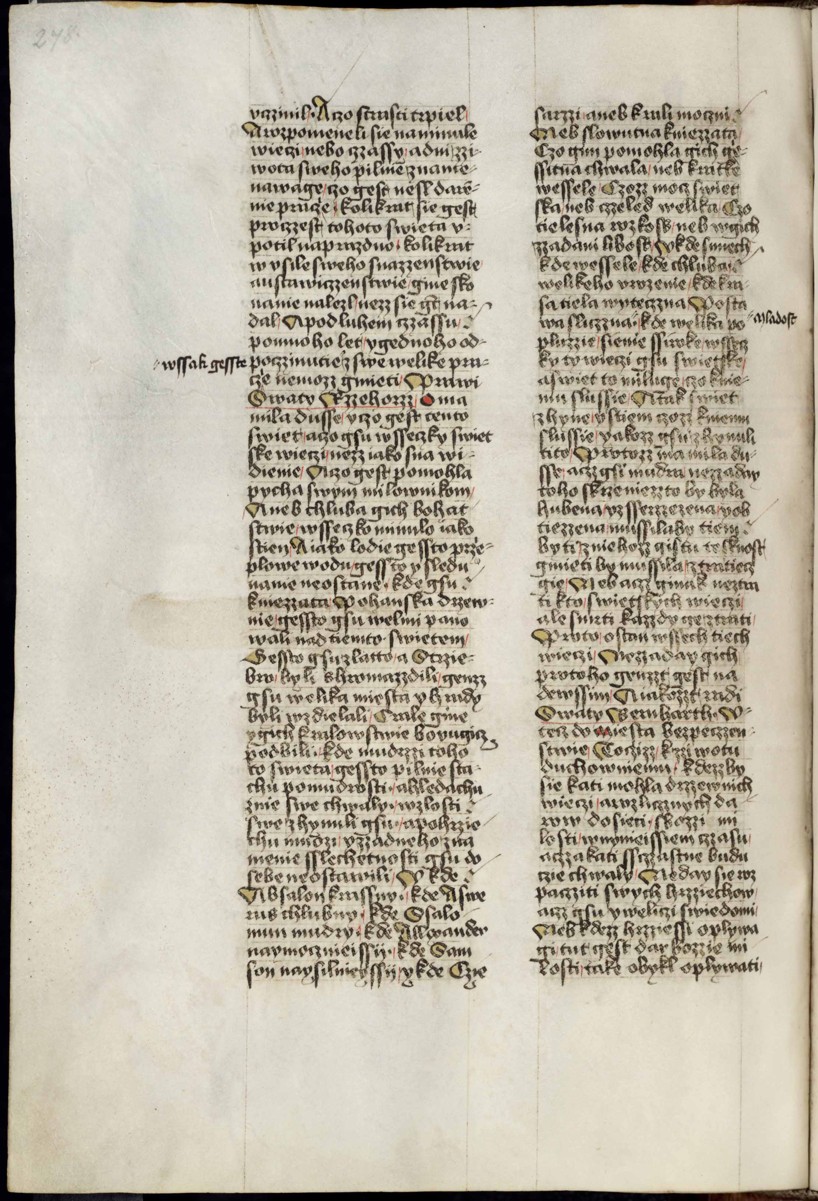 278
vczinil· Aczo strasti trpiel
Awzpomeneli sie na minule
wieczi nebo czassy, a dni zzi-
wota sweho pilnie zname-
nawage, czo gest nesl darē-
nie prācze, kolikrat sie gest
pro czzest tohoto swieta v-
potil naprazdno, kolikrat
w vsile sweho snazzenstwie
a ustawiczzenstwie, gine sko-
nanie nalezl, nezz sie gt na-
dal, A podluhem czzassu
po mnoho let, v gednoho od-
wssak gessto poczzinutie z swe welike pra-
cze nemozz gmieti, Prawi
Swaty Rzzehorzz, O ma
mila dusse, y czo gest tento
swiet, a czo gsu wsseczky swiet
ske wieczi, nezz iako sna wi-
dienie, A czo gest pomohla
pycha swym milownikom
A neb chluba gich bohat-
stwie, wsseczko minulo iako
stien, A iako lodie gessto prze-
plowe wodu, gessto y sledu
namie neostane, kde gsu
kniezzata Pohanska drzew-
nie, gessto gsu welmi pano
wali nad tiemto swietem
Gessto gsu zlatto, a Strzie-
bro byli shromazzdili, genzz
gsu welika miesta y hrady
byli wzdielali, Crale gine
y gich kralowstwie boyugicz
podbili, kde mudrzzi toho
to swieta, gessto pilnie sta-
chu po mudrosti, a hledachu
znie swe chwaly, wzlosti
swe zhynuli gsu, a pohrzie
chu mudrzi, y zzadneho zna
menie sslechetnosti gsu do
sebe neostawili, Y kde
Absalon krassny, kde Aswe
rus chlubny, kde Ssalo
mun mudry, kde Allexander
naymoczneissij, kde Sam
son naysilnieyssij, y kde Czie
sarzzi, a neb krali moczni
Neb slowutna kniezzata
Czo gim pomohla gich ge-
ssitna chwala, neb kratke
wessele, Czozz mocz swiet
ska, neb czzeled welika, Czo
tielesna rozkoss, neb w gich
zzadani libost, Y kde smiech
kde wessele, kde chluba
welikeho vrozenie, kde kra-
sa tiela wyteczzna, Posta
wa sliczzna, kde welika po mladost
plwzzie, sienie ssiroke, wssecz
ky to wieczi gsu swietske,
a swiet to miluge, czo knie-
mu slussie, A tak swiet
zhyne, y stiem czozz kniemu
slussie, yakozz gsu zhynuli
tito, Protozz ma mila du-
sse, aczz gsi mudra, nezzaday
toho skrze niezzto by byla
hubena, yz sserzzezena, y ob
tiezzena, mussilaby tiem
by ti z niehozz gistu teskност
gmieti by musila, ztratiecz
gie, Neb aczz ginak neztra
ti kto, swietskych wieczi,
ale smrti kazzdy ge ztrati
Proto ostan wssech tiech
wieczi, Nezzaday gich
protoho genzzt gest na
dewssim, A iakozzt radi
Swaty Bernharth, V-
tecz do miesta bezpeczzen-
stwie, Tocizz kzziwotu
duchowniemu, kdezz by
sie kati mohla drzewnich
wieczi, a rozlicznych da
row dosieci, skozzi mi
losti, w nynieissiem czzasu,
a czzakati ssczzastne budu
czie chwaly, Neday sie roz
paczziti swych hrzziechow,
aczz gsu y weliczi swiedomi
Neb kdezz hrzziessi oplywa
gi, tut gest dar bozzie mi
losti, take obykl oplywati,